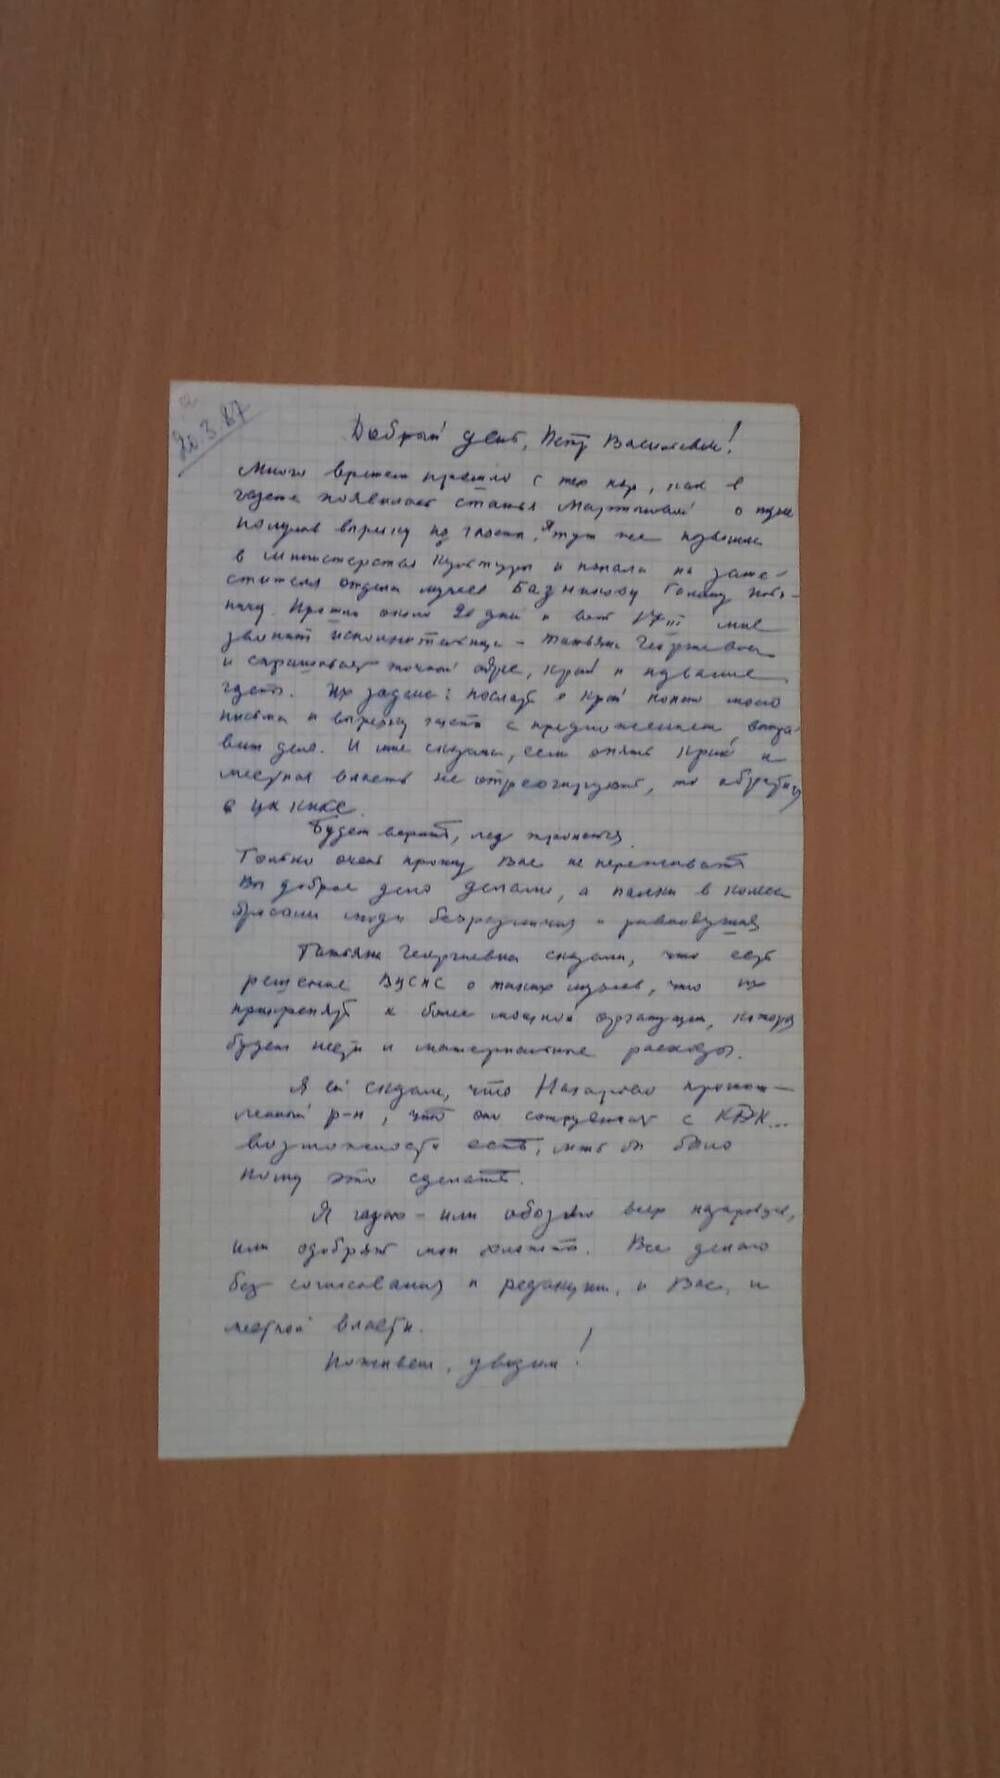 20.3.87
Добрый день, Петр Васильевич!
Много времени прошло с тех пор, как в
газете появилась статья Мартыновой о музее
получив вырезку из газеты, Я тут же позвонила
в министерство Культуры и попала на заме-
стителя отдела музеев
Прошло около 20 дней и вот 17 III мне
звонит исполнительница - Татьяна Георгиевна
и спрашивает точный адрес, край и название
газеты. Их задача: послать в край копию моего
письма и вырезку газеты с предложением,
вить дело. И мне сказали, если опять край и
местная власть не отреагируют, то обратится
в ЦК КПСС.
Будем верить, лед тронется
Только очень прошу Вас не переживать
Вы доброе дело делали, а палки в колеса
бросали люди безразличные и равнодушные
Татьяна Георгиевна сказала, что есть
решение ВЦСПС о таких музеях, что их
прикрепят к более мощной организации, которая
будет нести и материальные расходы.
Я ей сказала, что Назарово промыш-
ленный р-н, что он сотрудничает с
возможности есть, лишь бы было
кому это сделать.
Я гадаю - или обозлю всех назаровцев,
или одобрят мои хлопоты. Все делаю
без согласования и редакции, и Вас, и
местной власти.
Поживем, увидим!